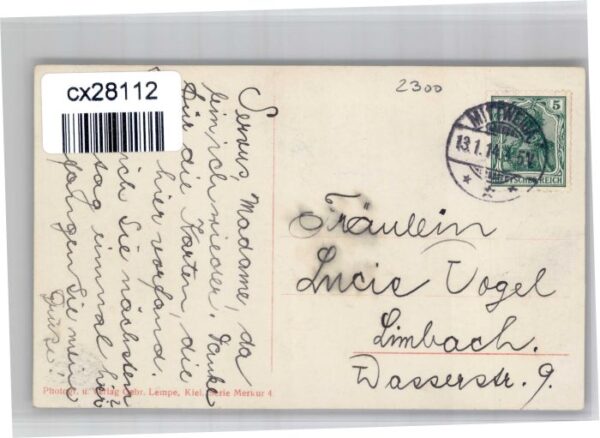 cx28112
2300
Servus, Madame, da
bin ich wieder. Danke
für die Karten, die
hier vorfand.
ich Sie nächsten
tag einmal hier
pfangen Sie meine
Grüsse!
5
MITTWEIDA
13.1.14
DEUTSCHES REICH
Fräulein
Lucie Vogel
Limbach.
Wasserstr. 9.
Photogr. u. Verlag Gebr. Lempe, Kiel. Serie Merkur 4.